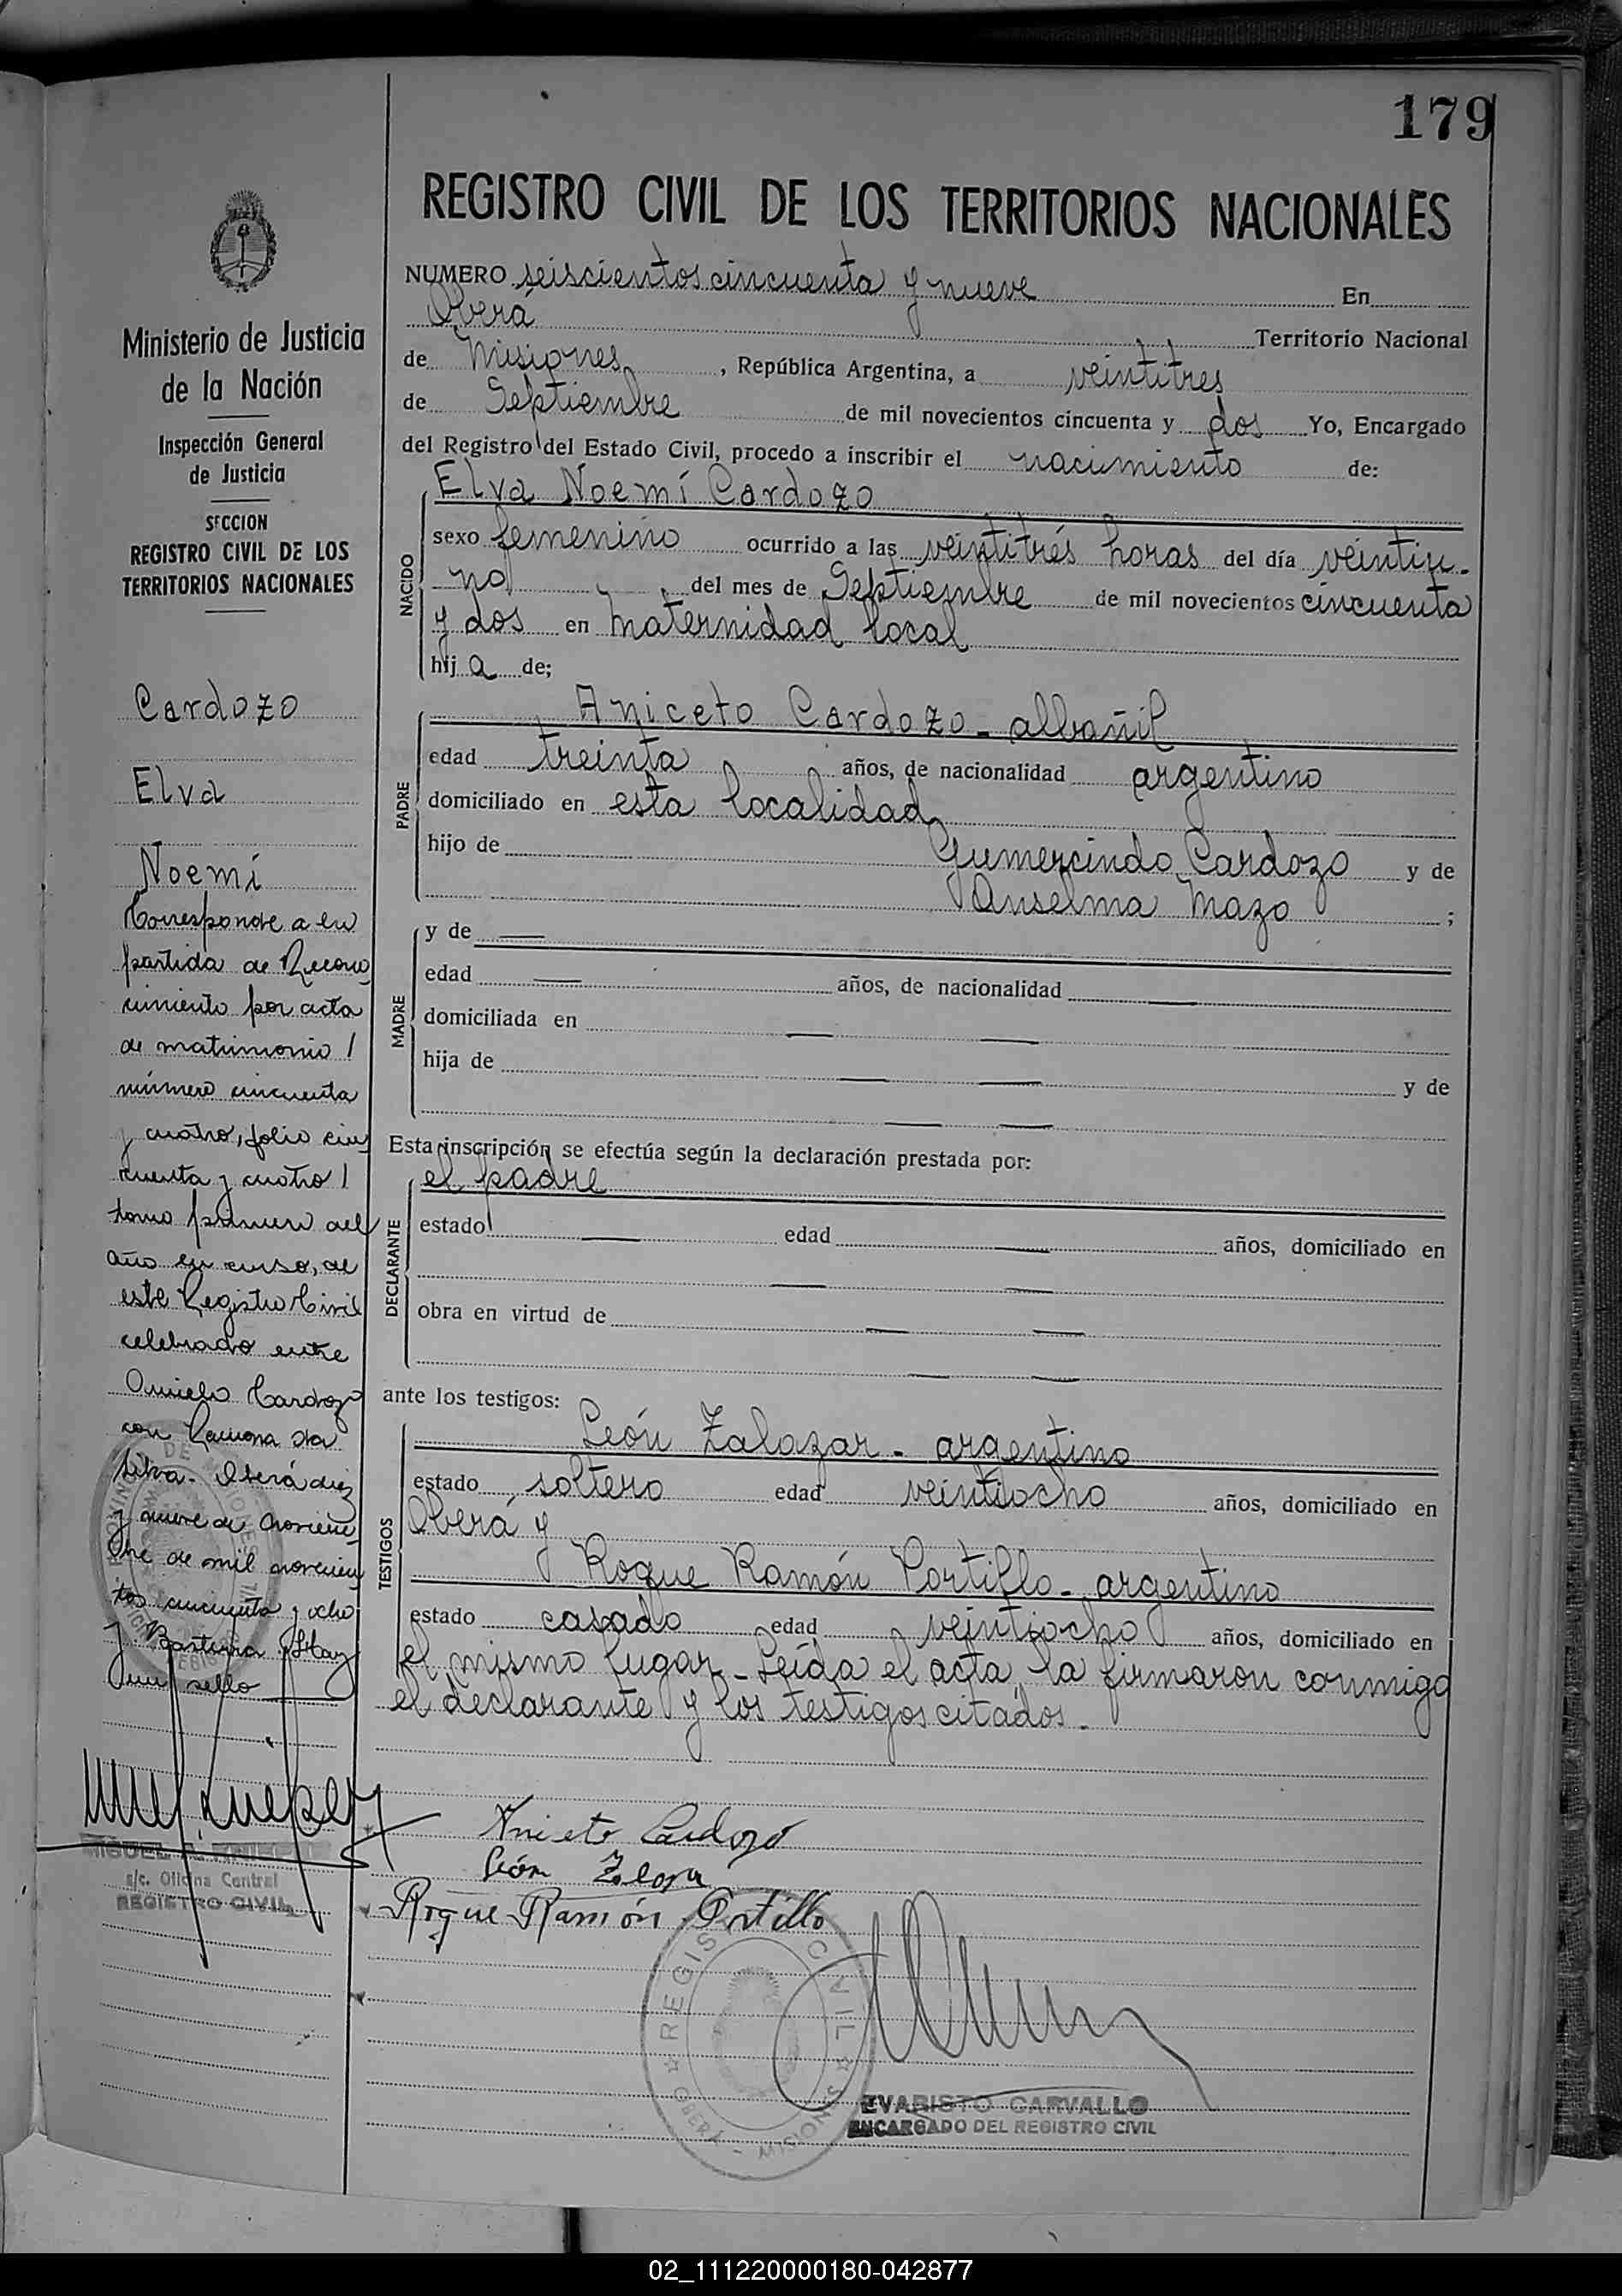 179
REGISTRO CIVIL DE LOS TERRITORIOS NACIONALES
NUMERO seiscientos cincuenta y nueve En
Oberá Territorio Nacional
de Misiones, República Argentina, a veintitres
de Septiembre de mil novecientos cincuenta y dos Yo, Encargado
del Registro del Estado Civil, procedo a inscribir el nacimiento de:
NACIDO
Elva Noemí Cardozo
sexo femenino ocurrido a las veintitrés horas del día veintiu-
no del mes de Septiembre de mil novecientos cincuenta
y dos en Maternidad local
hij a de;
PADRE
Aniceto Cardozo - albañil
edad treinta años, de nacionalidad argentino
domiciliado en esta localidad
hijo de Gumercindo Cardozo y de
Anselma Mazo ;
MADRE
y de —
edad — años, de nacionalidad —
domiciliada en — —
hija de — — y de
— —
Esta inscripción se efectúa según la declaración prestada por:
DECLARANTE
el padre
estado — edad — años, domiciliado en
— —
obra en virtud de — —
— —
ante los testigos:
TESTIGOS
León Zalazar - argentino
estado soltero edad veintiocho años, domiciliado en
Oberá y
Roque Ramón Portillo - argentino
estado casado edad veintiocho años, domiciliado en
el mismo lugar - Leída el acta, la firmaron conmigo
el declarante y los testigos citados.
Aniceto Cardozo
León
Roque Ramón Portillo
REGISTRO CIVIL
OBERA - MISIONES
EVARISTO CARVALLO
ENCARGADO DEL REGISTRO CIVIL
Ministerio de Justicia
de la Nación
Inspección General
de Justicia
SECCION
REGISTRO CIVIL DE LOS
TERRITORIOS NACIONALES
Cardozo
Elva
Noemí
Corresponde a su
partida de Recono
cimiento por acta
de matrimonio /
número cincuenta
y cuatro, folio cin
cuenta y cuatro /
tomo primero del
año en curso, de
este Registro Civil
celebrado entre
Aniceto Cardozo
con Ramona da
Silva - Oberá diez
y nueve de Noviem
bre de mil novecien
tos cincuenta y ocho
Hay
un sello
MIGUEL
a/c. Oficina Central
REGISTRO CIVIL
02_111220000180-042877